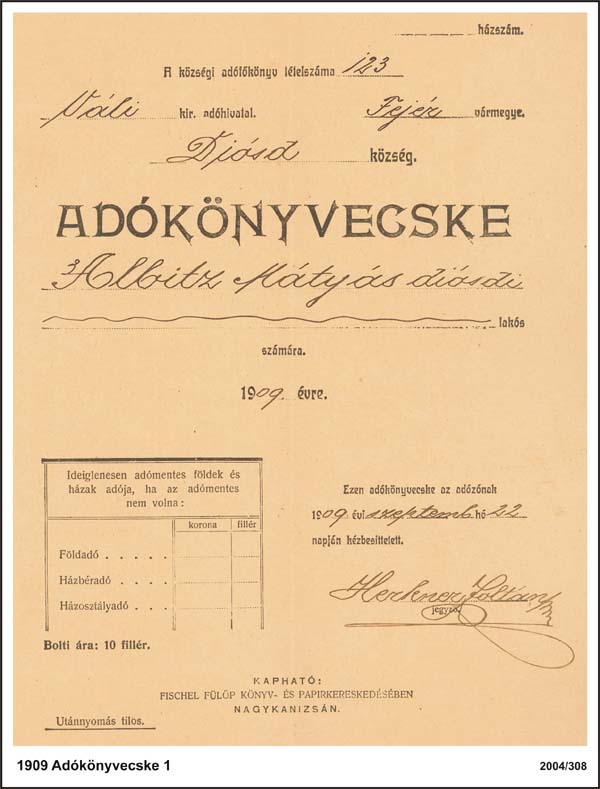 házszám.
A községi adófőkönyv tételszáma 123
Váli kir. adóhivatal. Fejér vármegye.
Diósd község.
ADÓKÖNYVECSKE
Albitz Mátyás diósdi
lakós
számára.
1909. évre.
Ideiglenesen adómentes földek és
házak adója, ha az adómentes
nem volna:
korona fillér
Földadó . . . . .
Házbéradó . . . .
Házosztályadó . . .
Bolti ára: 10 fillér.
Ezen adókönyvecske az adózónak
1909 évi szeptemb. hó 22
napján kézbesittetett.
Herkner Zoltán
jegyző.
KAPHATÓ:
FISCHEL FÜLÖP KÖNYV- ÉS PAPIRKERESKEDÉSÉBEN
NAGYKANIZSÁN.
Utánnyomás tilos.
1909 Adókönyvecske 1
2004/308